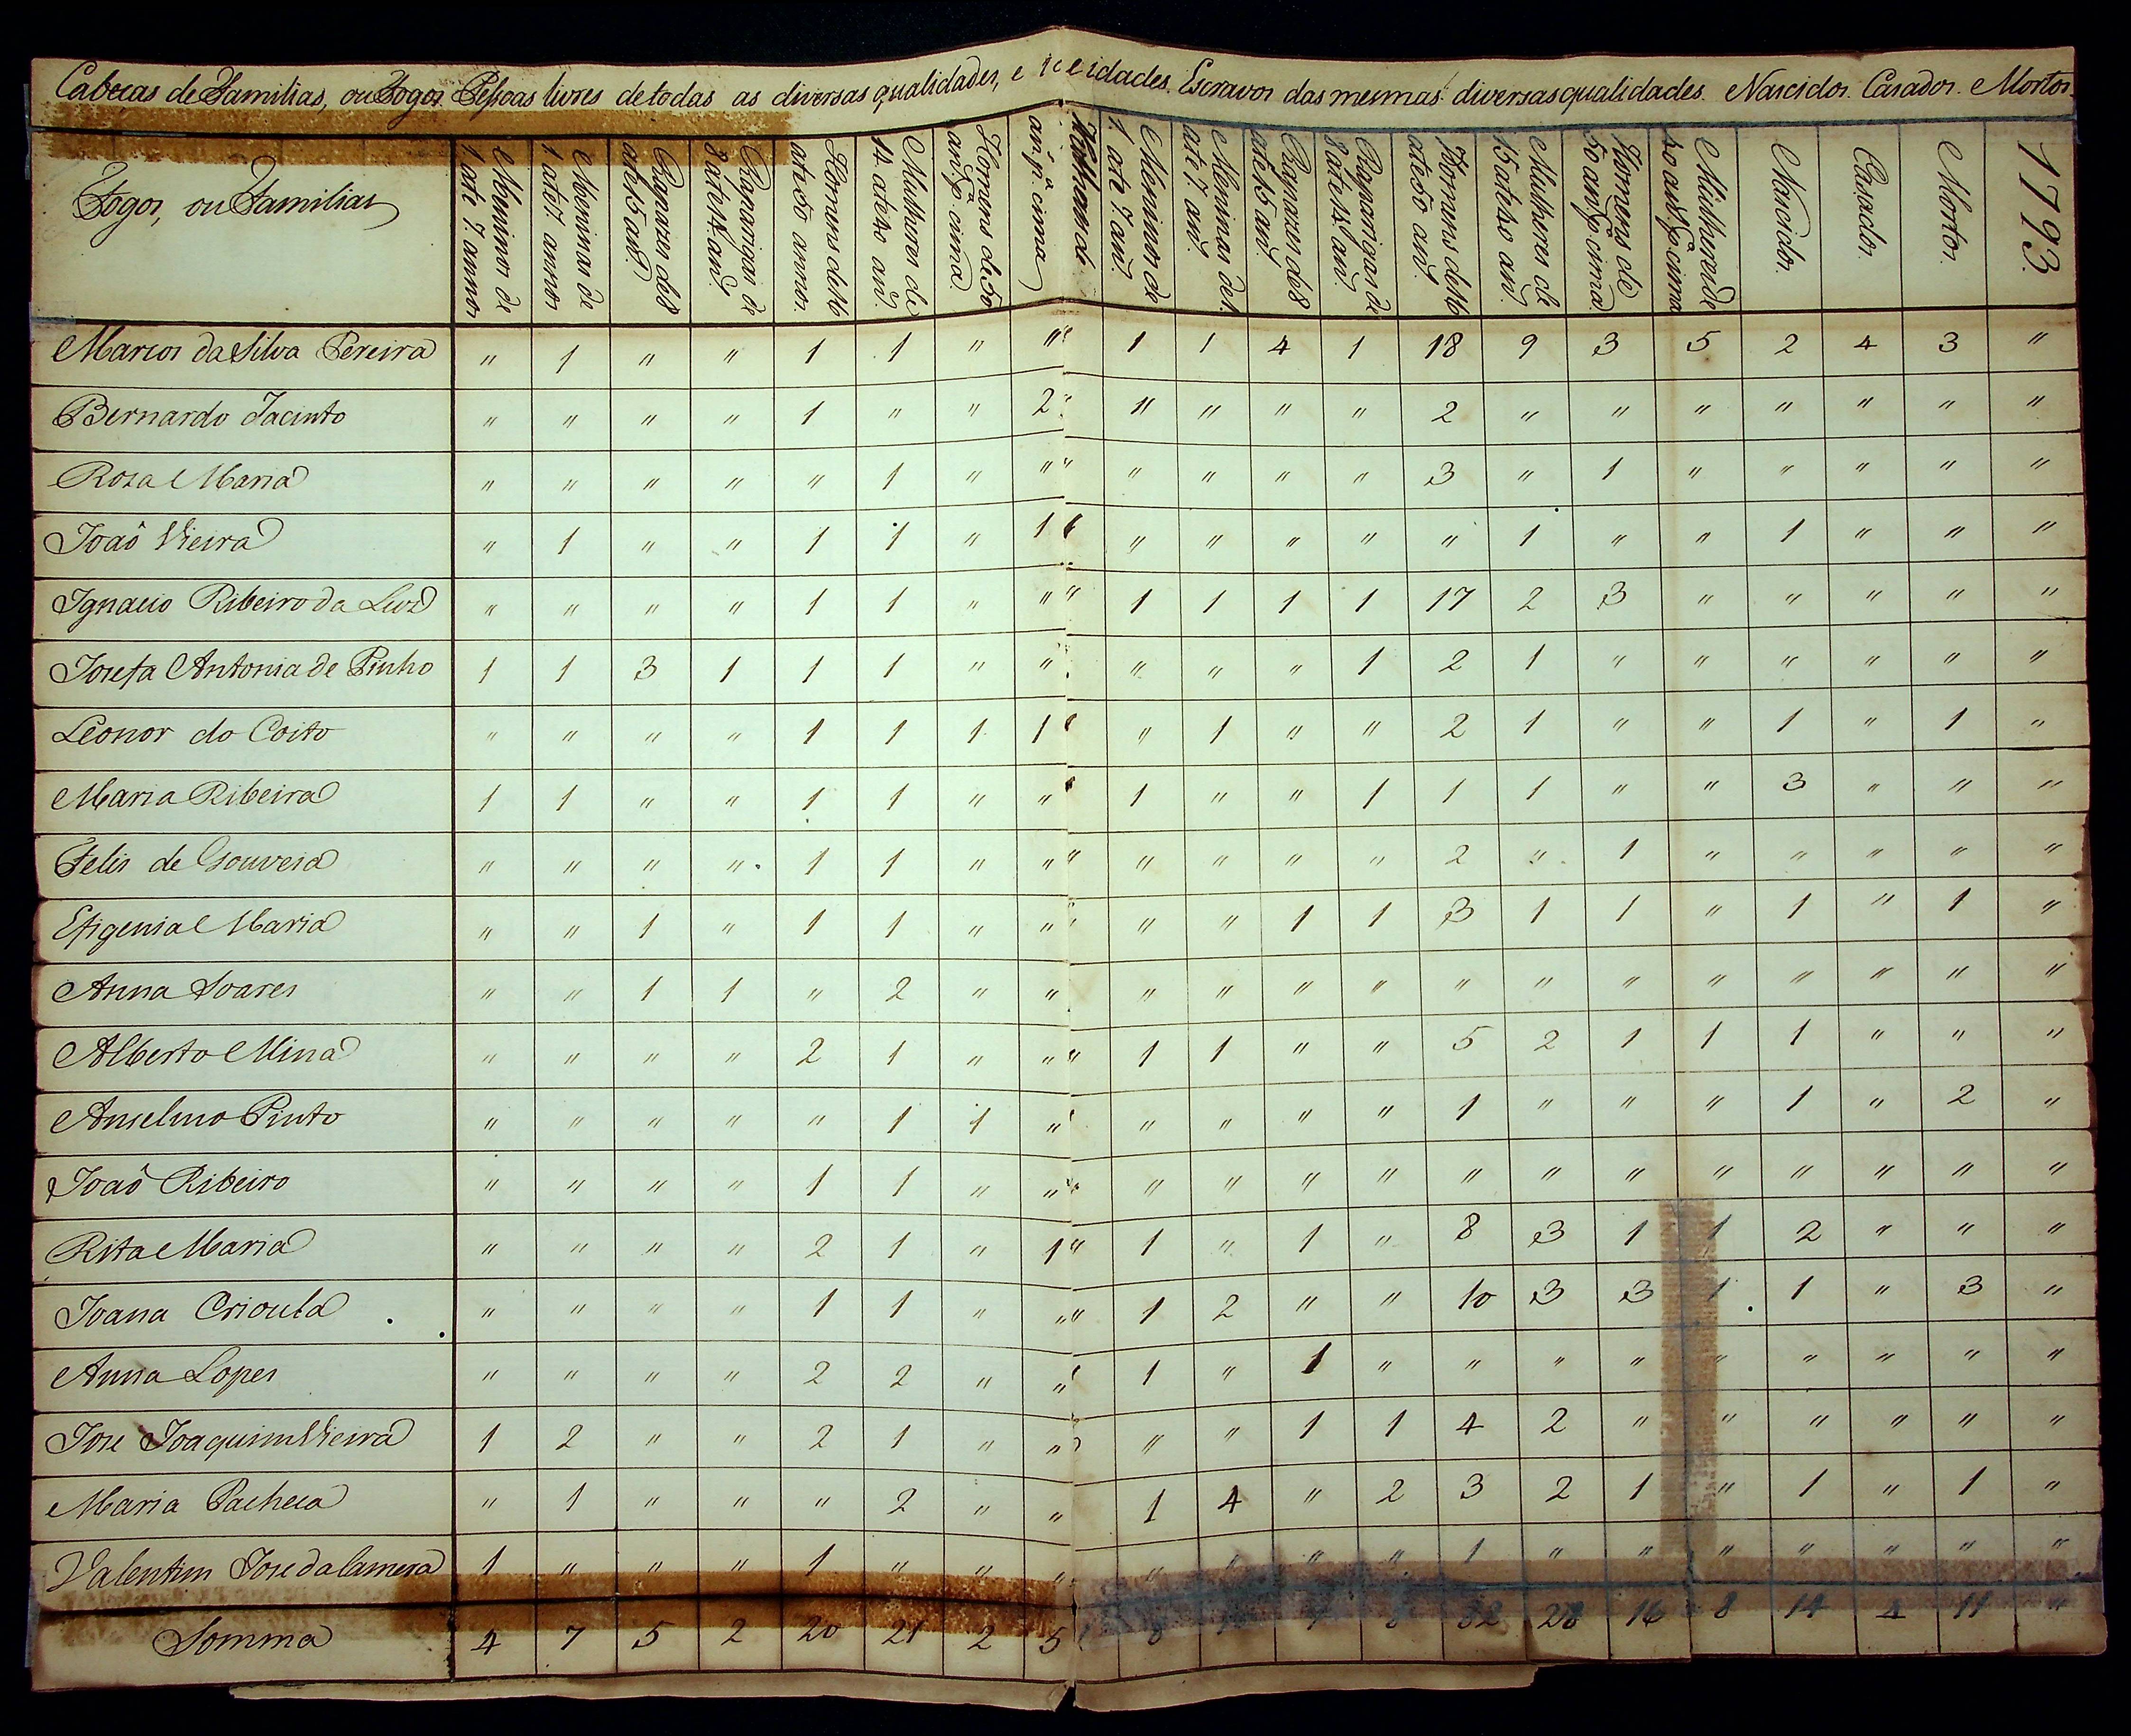 Cabecas de Familias, ou Fogos. Pessoas livres de todas as diversas qualidades, e idades. Escravos das mesmas diversas qualidades. Nascidos. Casados. Mortos.
Fogos, ou Familias
Meninos de 1 ate 7. annos
Meninas de 1 ate 7. annos
Rapazes de 8 ate 15 an.
Raparigas de 8 ate 14 an.
Homens de 16 ate 50 annos.
Mulheres de 14 ate 40 an.
Homens de 50 an. pa. cima.
an. pa. cima
Meninos de 1. ate 7. an.
Meninas de 1. ate 7. an.
Rapazes de 8 ate 15 an.
Raparigas de 8 ate 14 an.
Homens de 16 ate 50 an.
Mulheres de 15 ate 40 an.
Homens de 50 an. pa. cima.
Mulheres de 40 an. pa. cima
Nascidos.
Casados.
Mortos.
1793.
Marcos da Silva Pereira " 1 " " 1 1 " " 1 1 4 1 18 9 3 5 2 4 3 "
Bernardo Jacinto " " " " 1 " " 2 " " " " 2 " " " " " " "
Roza Maria " " " " " 1 " " " " " " 3 " 1 " " " " "
Joaô Vieira " 1 " " 1 1 " 1 " " " " " 1 " " 1 " " "
Ignacio Ribeiro da Luz " " " " 1 1 " " 1 1 1 1 17 2 3 " " " " "
Josefa Antonia de Pinho 1 1 3 1 1 1 " " " " " 1 2 1 " " " " " "
Leonor do Coito " " " " 1 1 1 1 " 1 " " 2 1 " " 1 " 1 "
Maria Ribeira 1 1 " " 1 1 " " 1 " " 1 1 1 " " 3 " " "
Felis de Gouveia " " " " 1 1 " " " " " " 2 " 1 " " " " "
Efigenia Maria " " 1 " 1 1 " " " " 1 1 3 1 1 " 1 " 1 "
Anna Soares " " 1 1 " 2 " " " " " " " " " " " " " "
Alberto Mina " " " " 2 1 " " 1 1 " " 5 2 1 1 1 " " "
Anselmo Pinto " " " " " 1 1 " " " " " 1 " " " 1 " 2 "
Joaô Ribeiro " " " " 1 1 " " " " " " " " " " " " " "
Rita Maria " " " " 2 1 " 1 1 " 1 " 8 3 1 1 2 " " "
Joana Crioula " " " " 1 1 " " 1 2 " " 10 3 3 1 1 " 3 "
Anna Lopes " " " " 2 2 " " 1 " 1 " " " " " " " " "
Jose Joaquim Vieira 1 2 " " 2 1 " " " " 1 1 4 2 " " " " " "
Maria Pacheca " 1 " " " 2 " " 1 4 " 2 3 2 1 " 1 " 1 "
Valentim Jose da Camera 1 " " " 1 " " " " " " " 1 " " " " " " "
Somma 4 7 5 2 20 21 2 5 8 82 28 16 8 14 4 11 "